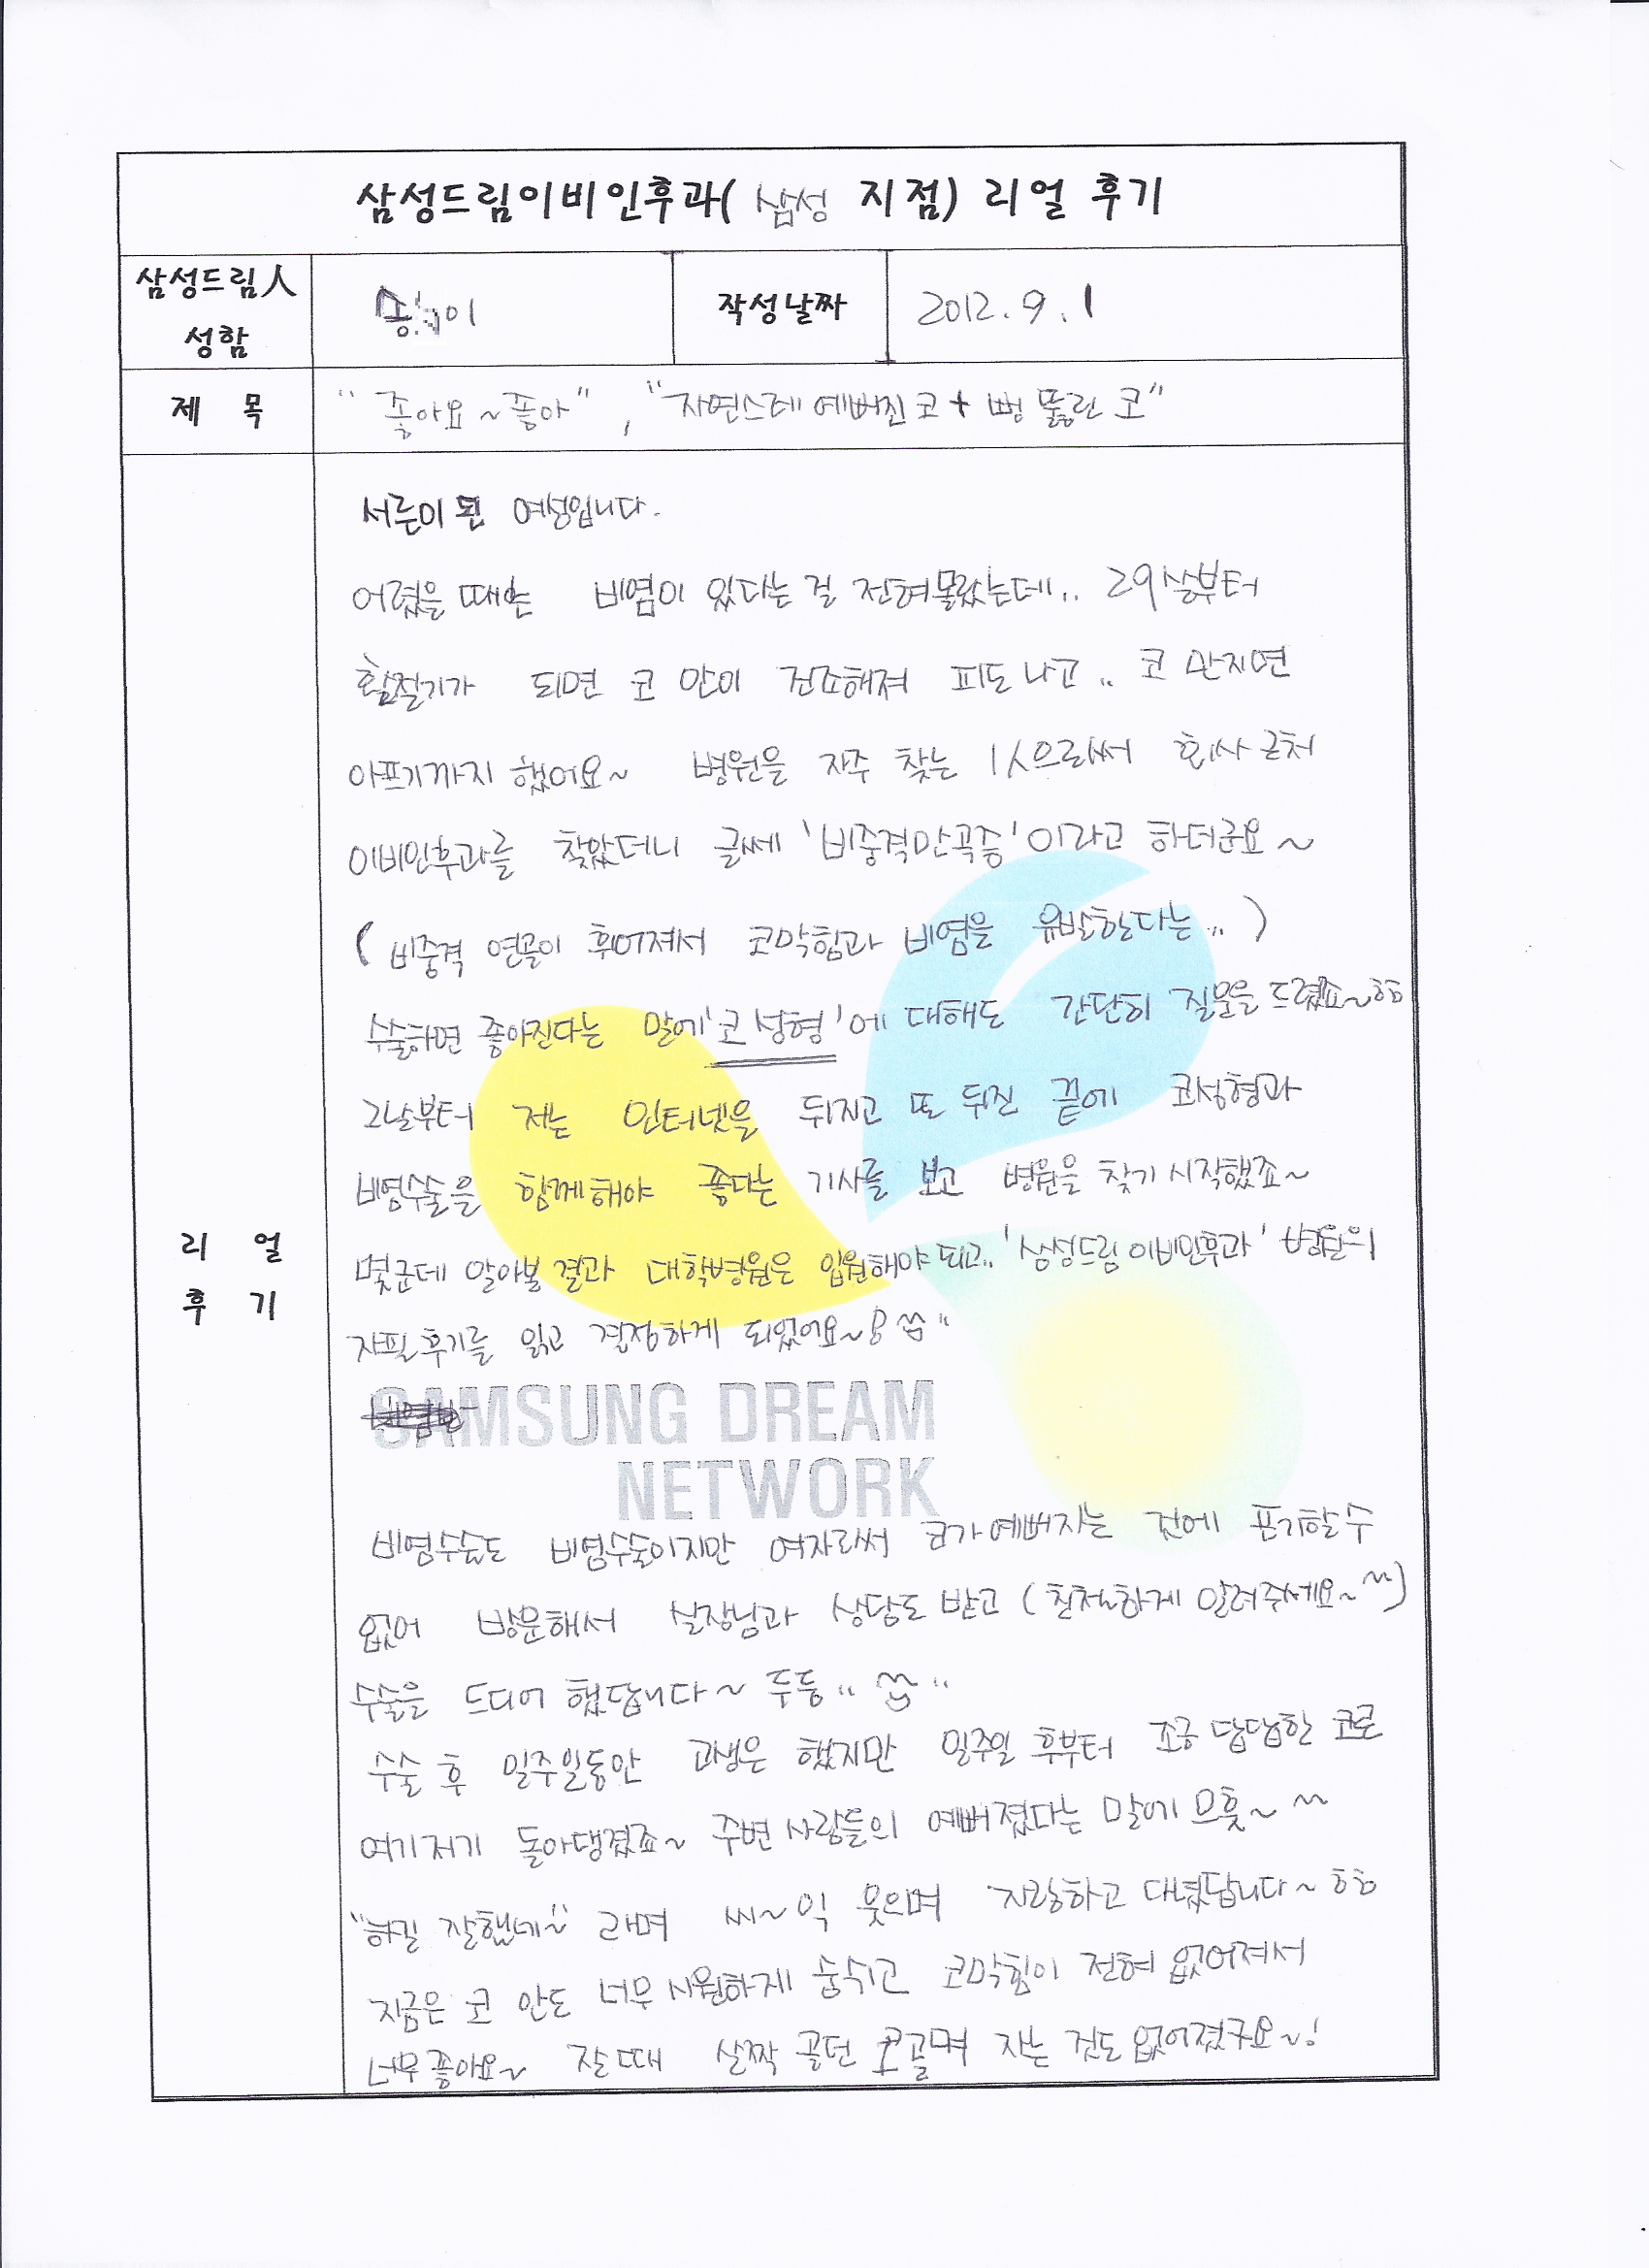 삼성드림이비인후과( 삼성 지점) 리얼 후기
삼성드림人
성함
작성날짜
2012. 9. 1
제 목
"좋아요~좋아", "자연스레 예뻐진 코 + 뻥 뚫린 코"
서른이 된 여성입니다.
어렸을 때는 비염이 있다는 걸 전혀몰랐는데.. 29살부터
환절기가 되면 코 안이 건조해져 피도 나고.. 코 만지면
아프기까지 했어요~ 병원을 자주 찾는 1人으로써 회사 근처
이비인후과를 찾았더니 글쎄 '비중격만곡증'이라고 하더군요~
( 비중격 연골이 휘어져서 코막힘과 비염을 유발한다는... )
수술하면 좋아진다는 말에 '코 성형'에 대해도 간단히 질문을 드렸죠~ㅎㅎ
그날부터 저는 인터넷을 뒤지고 또 뒤진 끝에 코성형과
비염수술을 함께해야 좋다는 기사를 보고 병원을 찾기 시작했죠~
몇군데 알아본 결과 대학병원은 입원해야 되고.. '삼성드림 이비인후과' 병원의
자필후기를 읽고 결정하게 되었어요~
리 얼
후 기
SAMSUNG DREAM
NETWORK
비염수술도 비염수술이지만 여자라써 코가 예뻐지는 것에 포기할 수
없어 방문해서 실장님과 상담도 받고 (친절하게 알려주세요~^^)
수술을 드디어 했답니다~ 두둥..
수술 후 일주일동안 고생은 했지만 일주일 후부터 조금 답답한 코로
여기저기 돌아댕겼죠~ 주변 사람들의 예뻐졌다는 말에 므흣~ ^^
"하길 잘했네~" 라며 씨~익 웃으며 자랑하고 대녔답니다~ ㅎㅎ
지금은 코 안도 너무 시원하게 숨쉬고 코막힘이 전혀 없어져서
너무 좋아요~ 잘 때 살짝 골던 코골며 자는 것도 없어졌구요~!